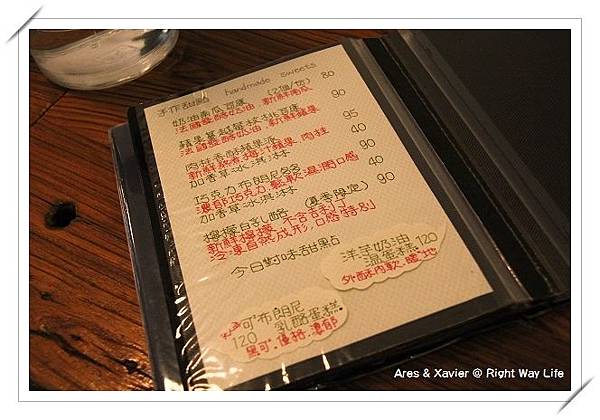 手作甜點 handmade sweets
奶油南瓜豆腐 (2個/份) 80
法國發酵奶油.新鮮南瓜
蘋果蔓越莓核桃豆腐 90
法國發酵奶油.新鮮蘋果
肉桂香酥蘋果派 95
新鮮蒸煮檸汁蘋果.肉桂
加香草冰淇淋 40
巧克力布朗尼 90
濃郁巧克力 鬆軟濕潤口感
加香草冰淇淋 40
檸檬自乳酪 (夏季限定) 90
新鮮檸檬 不含吉利丁
冷凍自然成形,口感特別
今日對味甜點
洋芋奶油
溫蛋糕 120
外酥內軟.暖地
可布朗尼
120 乳酪蛋糕.
黑可.優格.濃郁
Ares & Xavier @ Right Way Life